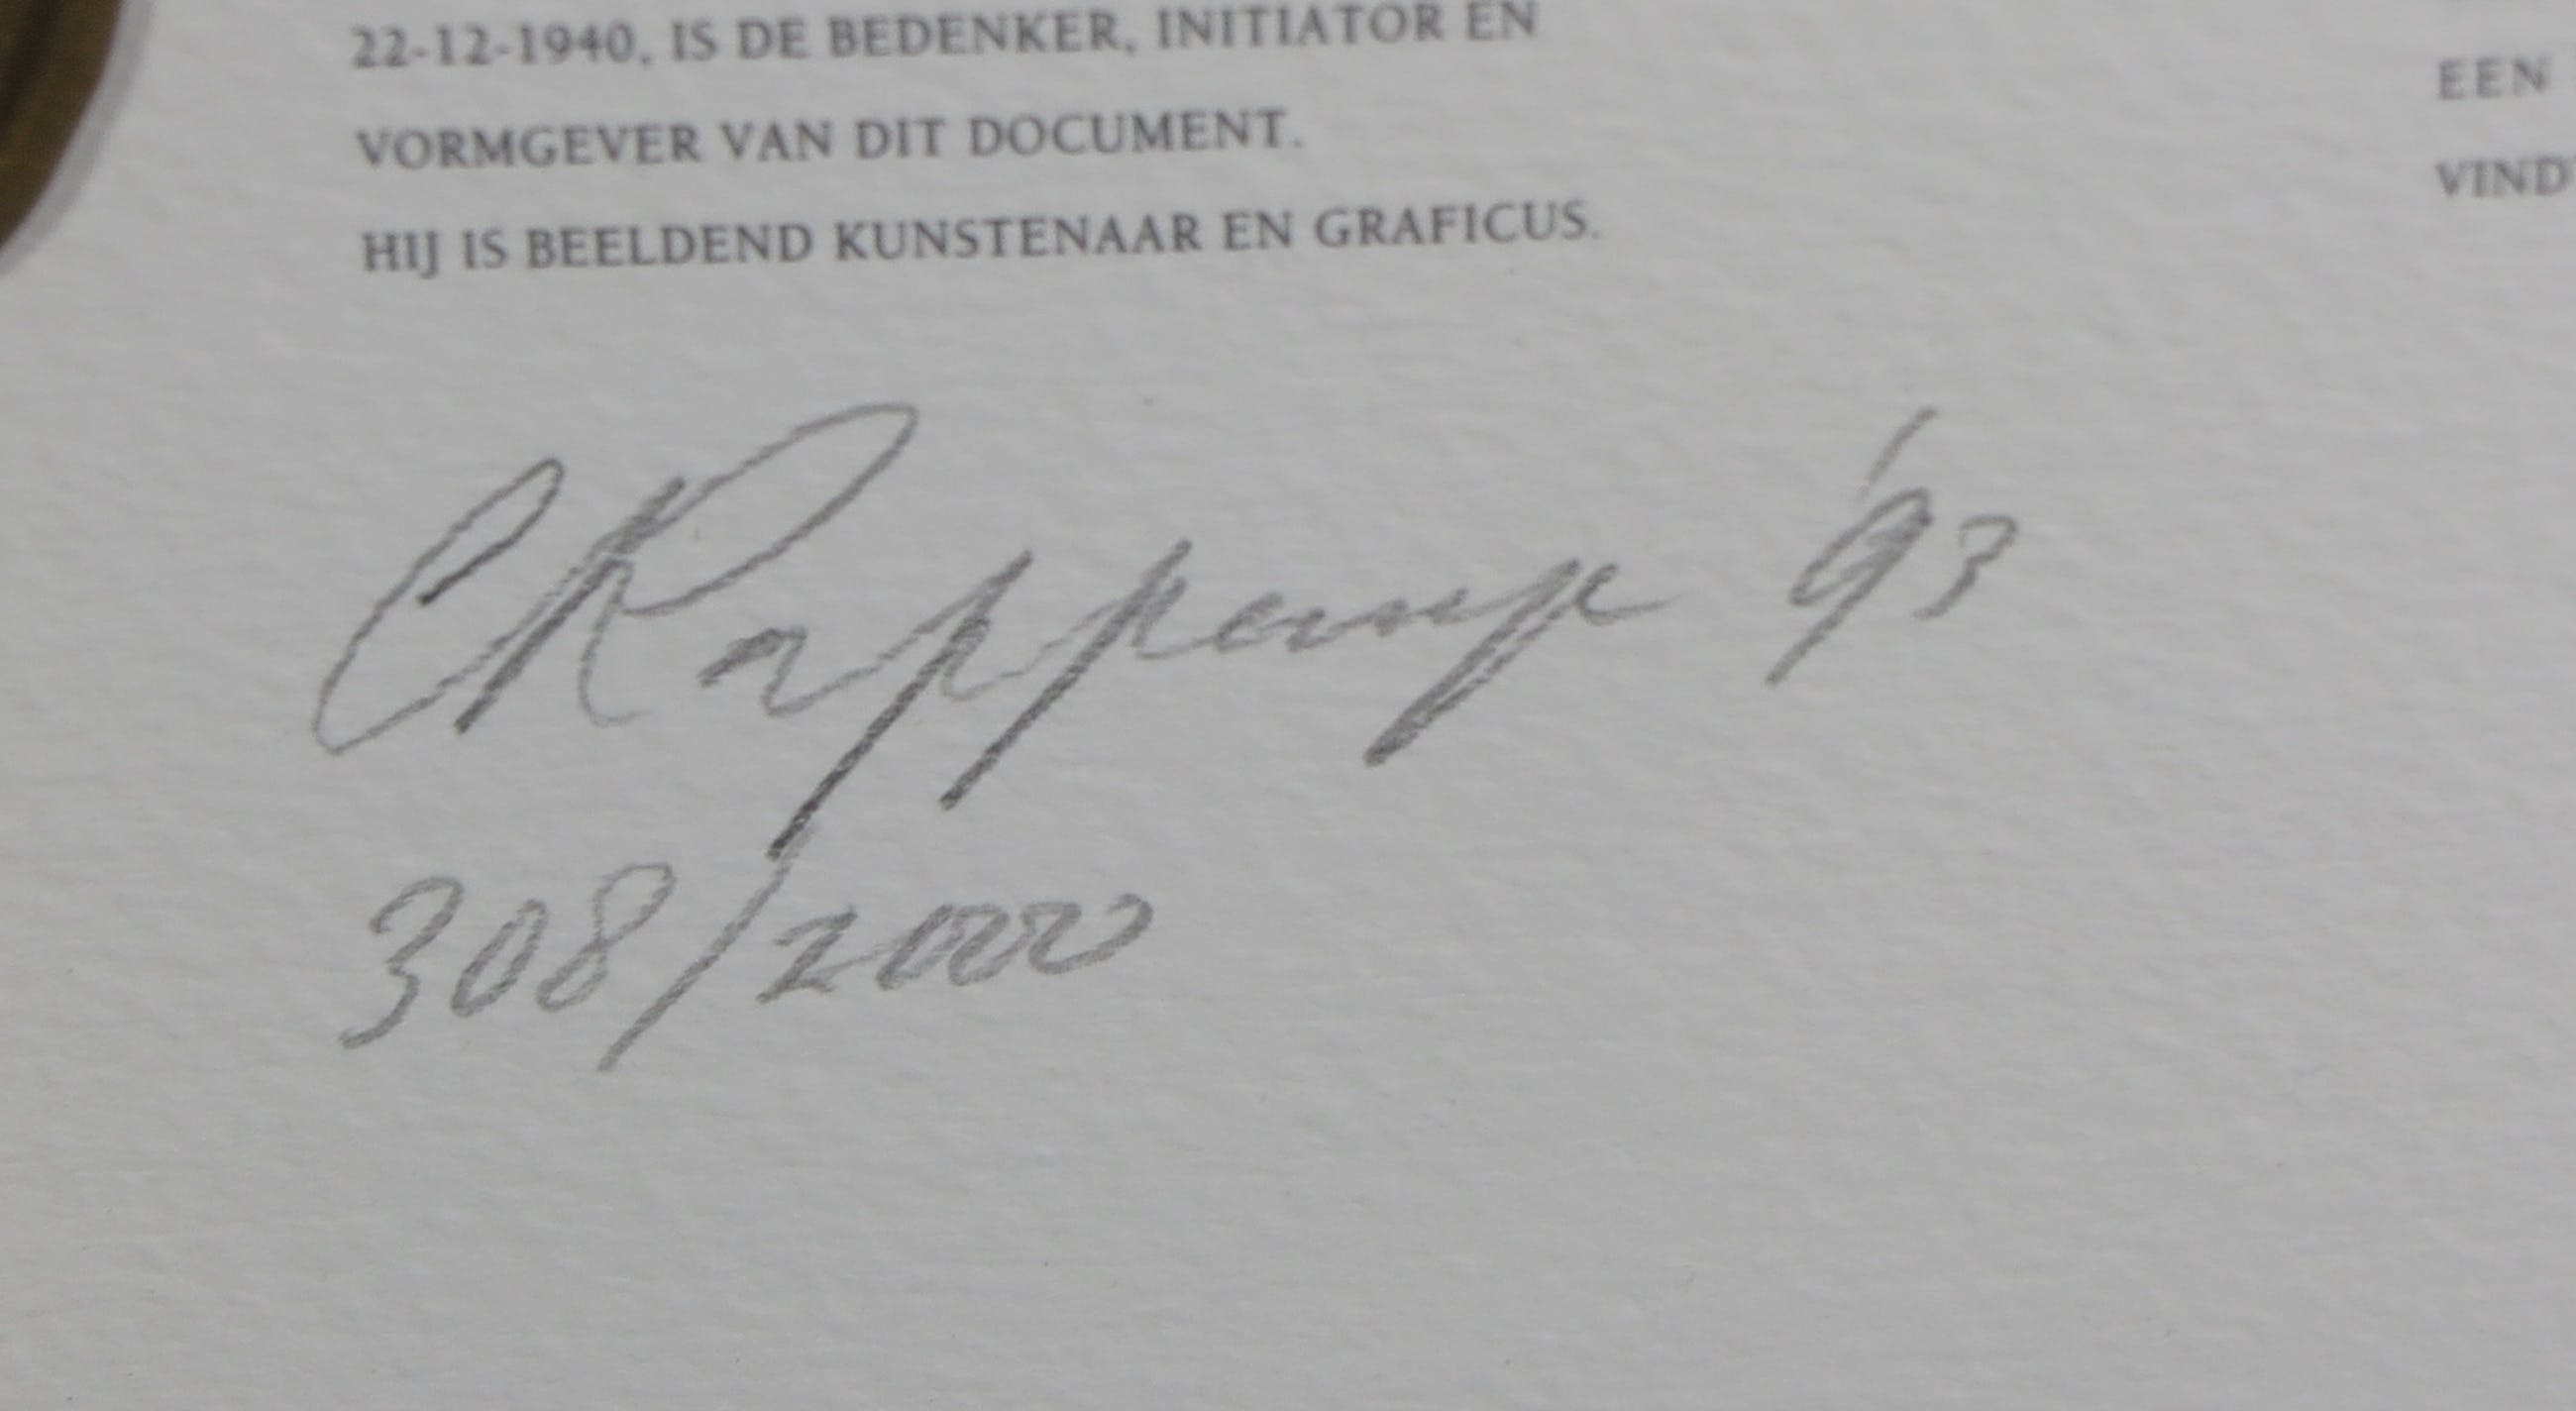 22-12-1940, IS DE BEDENKER, INITIATOR EN
VORMGEVER VAN DIT DOCUMENT.
HIJ IS BEELDEND KUNSTENAAR EN GRAFICUS.
EEN
VIND
'93
308/2000